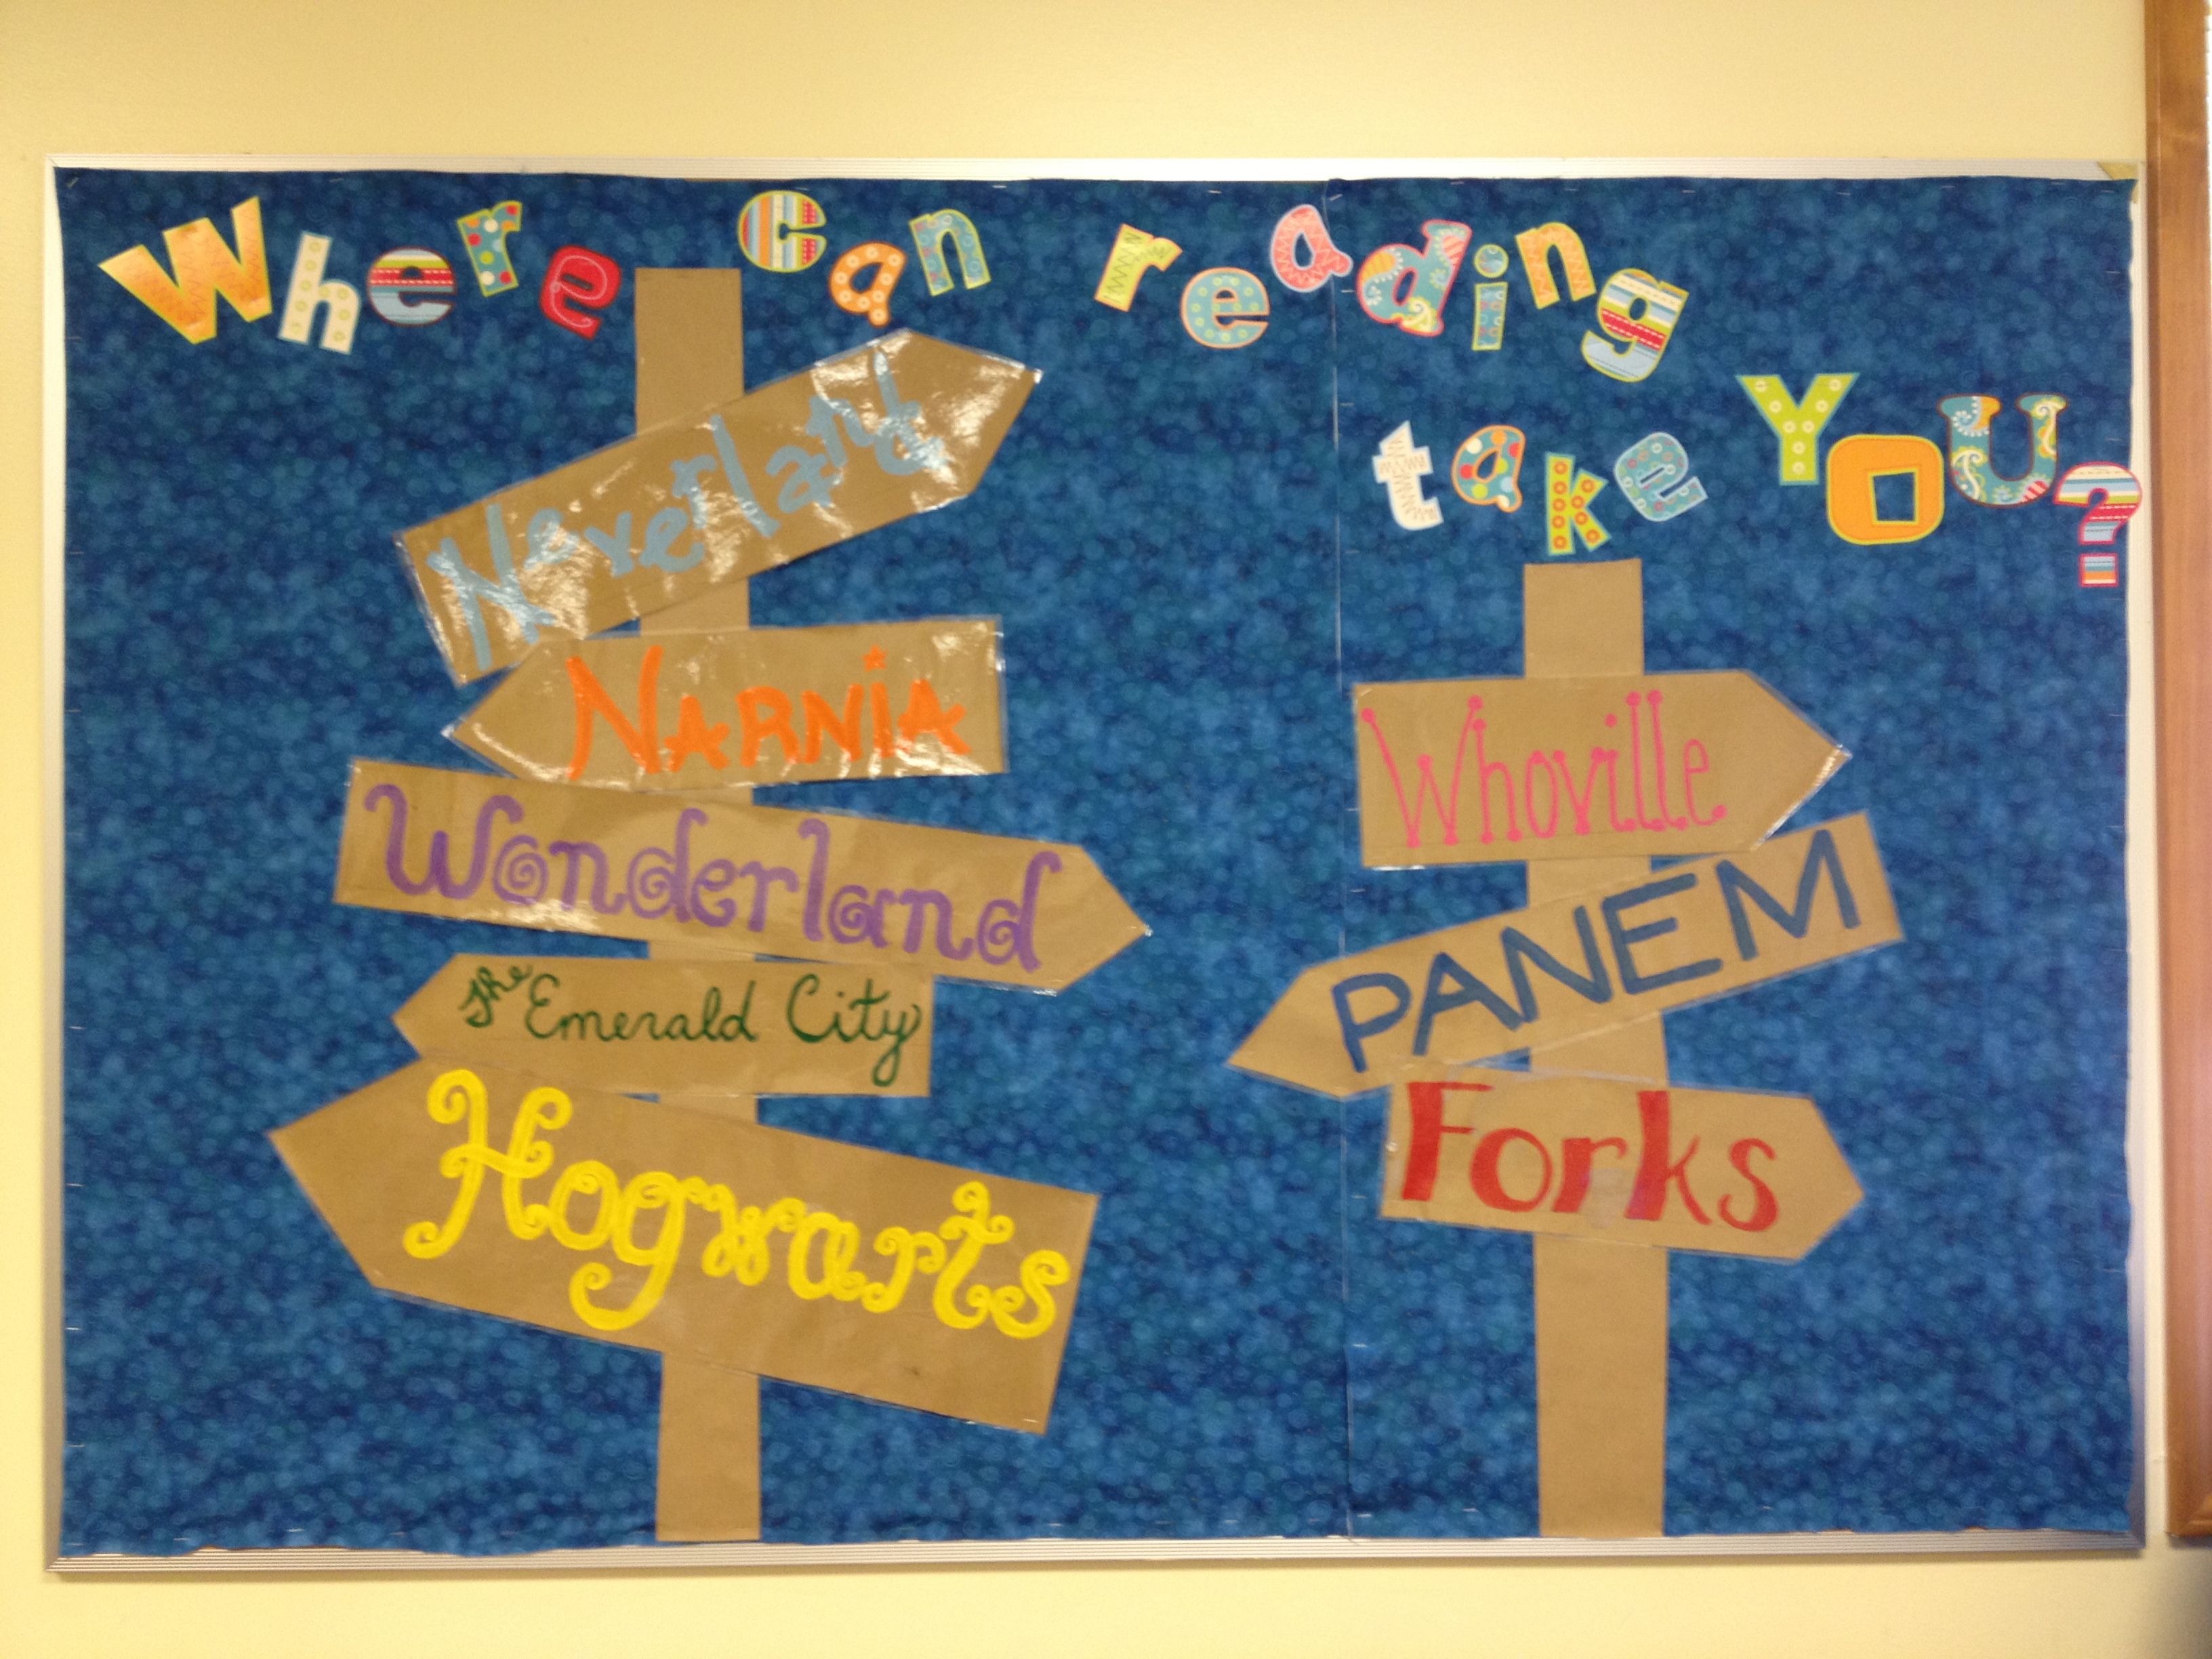 Where Can reading
take YOU?
Neverland
Narnia
Wonderland
The Emerald City
Hogwarts
Whoville
PANEM
Forks